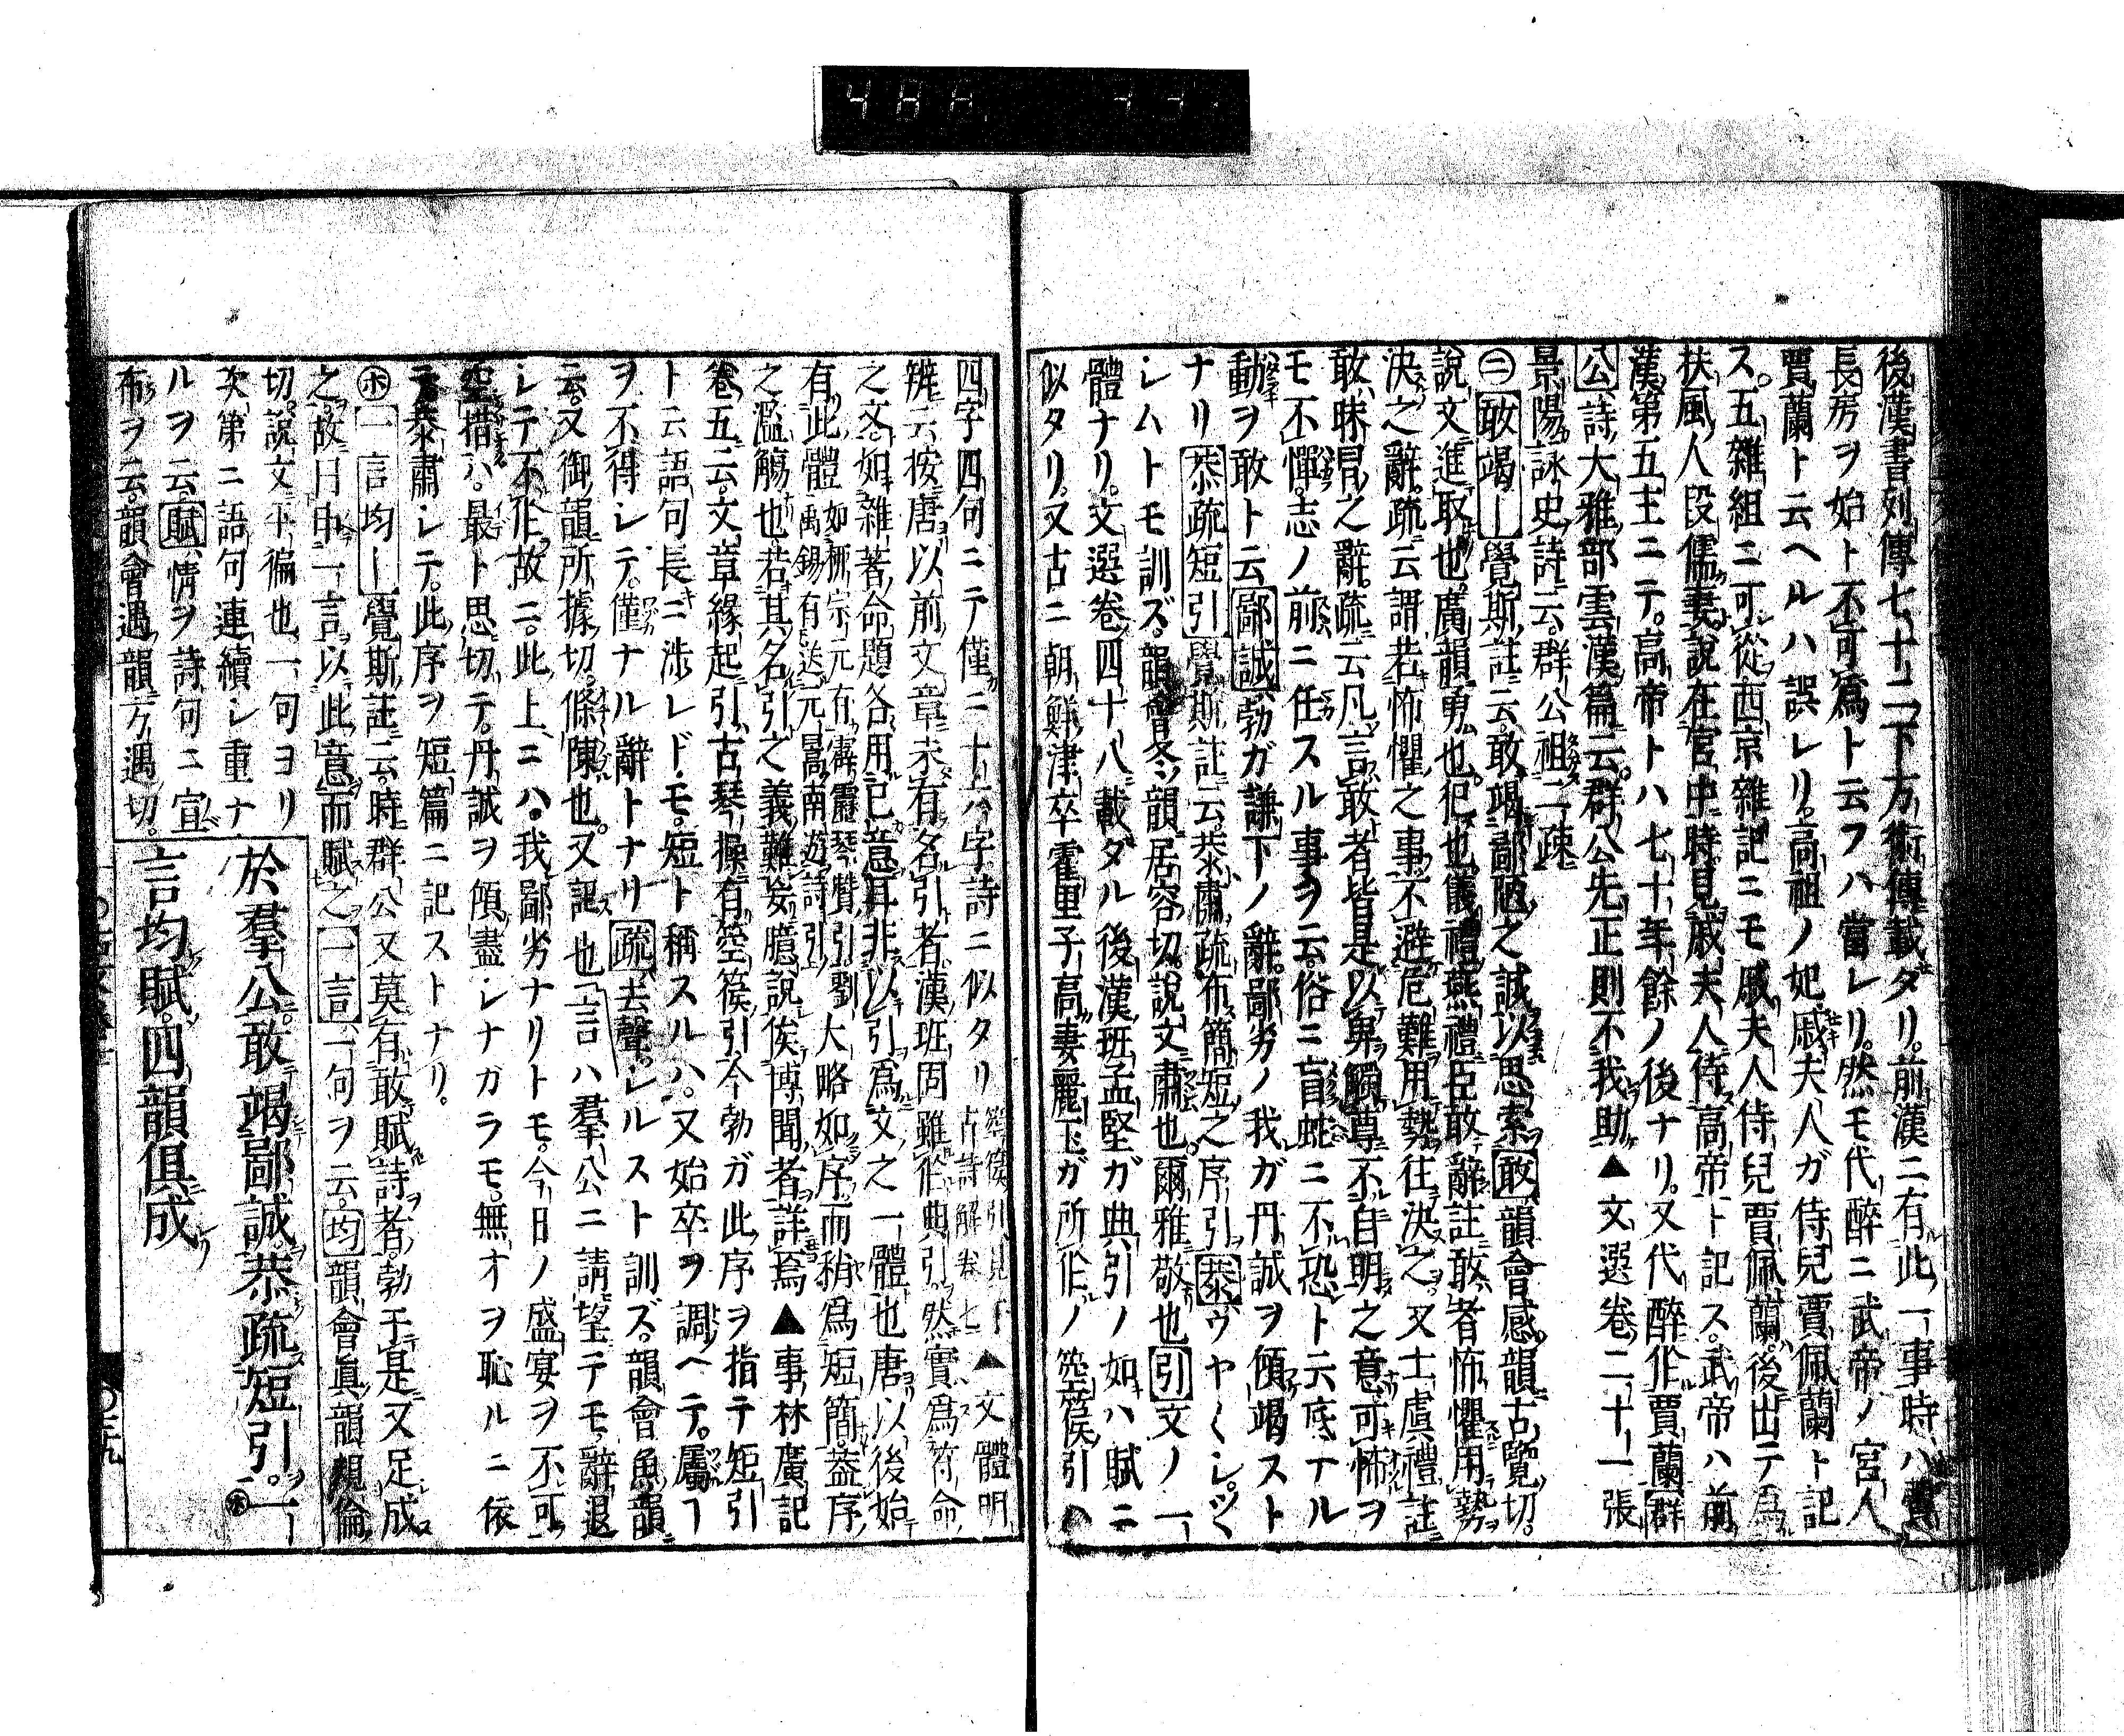 後漢書列傳七十二下方術傳載タリ。前漢ニ有此一事時ハ費
長房ヲ始ト不可爲ト云フハ當レリ。然モ代醉ニ武帝ノ宮人
賈蘭ト云ヘルハ誤レリ。高祖ノ妃戚夫人ガ侍兒賈佩蘭ト記
ス。五雜組ニ可從西京雜記ニモ戚夫人侍兒賈佩蘭。後出テ爲
扶風人段儒妻說在宮中時見戚夫人侍高帝ト記ス。武帝ハ前
漢第五主ニテ。高帝トハ七十年餘ノ後ナリ。又代醉作賈蘭群
公詩大雅部雲漢篇云。群公先正則不我助▲文選卷二十一張
景陽詠史詩云。群公祖二疎
㊁敢竭―覺斯註云。敢竭鄙陋之誠以思索敢韻會感韻古覽切。
說文進取也。廣韻勇也。犯也儀禮燕禮臣敢辭註敢者怖懼用勢
決之辭。疏云謂若怖懼之事不避危難用勢往決之。又士虞禮註
敢昧冒之辭。疏云凡言敢者皆是以卑觸尊不自明之意可怖ヲ
モ不憚。志ノ前ニ任スル事ヲ云。俗ニ盲蛇ニ不恐ト云底ナル
動ヲ敢ト云鄙誠勃ガ謙下ノ辭。鄙劣ノ我ガ丹誠ヲ傾竭スト
ナリ恭疏短引覺斯註云。恭肅疏布簡短之序引恭ウヤ〱シ。ツヽ
シムトモ訓ズ。韻會冬韻居容切。說文肅也。爾雅敬也引文ノ一
體ナリ。文選卷四十八載タル後漢班孟堅ガ典引ノ如ハ賦ニ
似タリ。又古ニ朝鮮津卒霍里子高妻麗玉ガ所作ノ箜篌引ハ
四字四句ニテ僅ニ十六字詩ニ似タリ箜篌引見于古詩解卷七▲文體明
辨云按唐以前文章未有名引者漢班固雖作典引。然實爲符命
之文。如雜著命題各用己意耳非以引爲文之一體也唐以後始
有此體如柳宗元有霹靂琴贊引劉禹錫有送元暠南遊詩引大略如序。而稍爲短簡。蓋序
之濫觴也若其名引之義難妄臆說俟博聞者詳焉▲事林廣記
卷五云。文章緣起引。古琴操有箜篌引今勃ガ此序ヲ指テ短引
ト云語句長ニ渉レドモ。短ト稱スルハ。又始卒ヲ調ヘテ。屬ー
ヲ不得シテ。僅ナル辭トナリ疏去聲。シルスト訓ズ。韻會魚韻
云。又御韻所據切。條陳也。又記也言ハ羣公ニ請望テモ。辭退
シテ不作故ニ。此上ニハ。我鄙劣ナリトモ。今日ノ盛宴ヲ不可
空措ハ。最ト思切テ。丹誠ヲ傾盡シナガラモ。無才ヲ恥ルニ依
テ恭肅シテ。此序ヲ短篇ニ記ストナリ。
㋭一言均―覺斯註云。時群公又莫有敢賦詩者。勃于是又足成
之。故曰申一言以此意而賦之一言一句ヲ云。均韻會眞韻規倫
切。說文平徧也一句ヨリ
次第ニ語句連續シ重ナ
ルヲ云。賦情ヲ詩句ニ宣
布ヲ云。韻會遇韻方遇切。
於羣公。敢竭鄙誠恭疏短引。一㋭
言均賦。四韻俱成